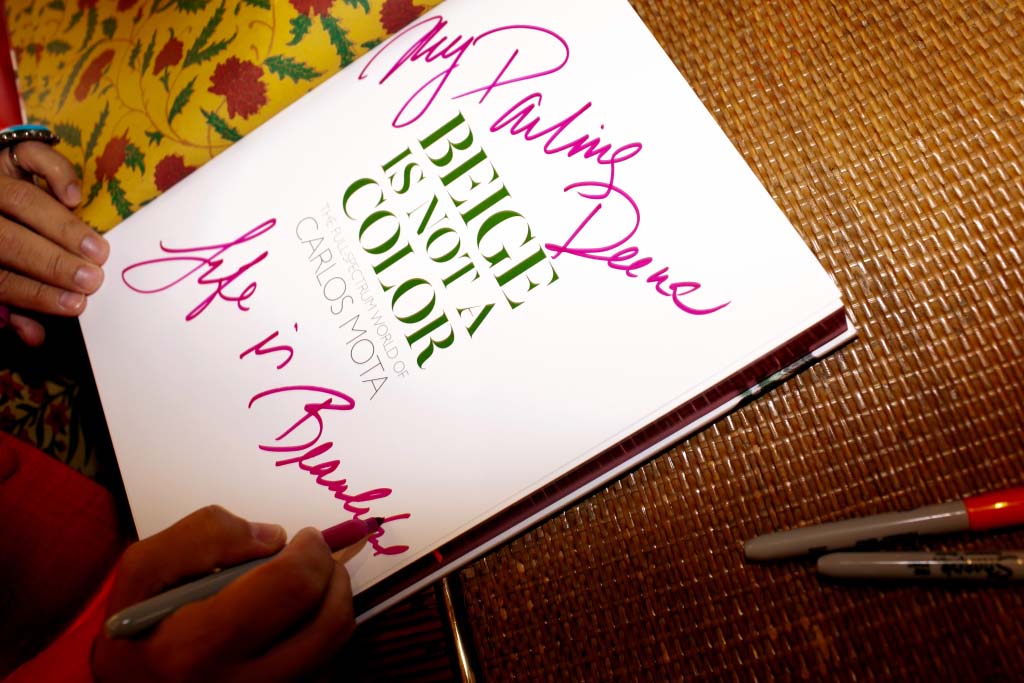 My Darling
Deena
BEIGE
IS NOT A
COLOR
THE FULL SPECTRUM WORLD OF
CARLOS MOTA
Life is Beautiful
Sharpie